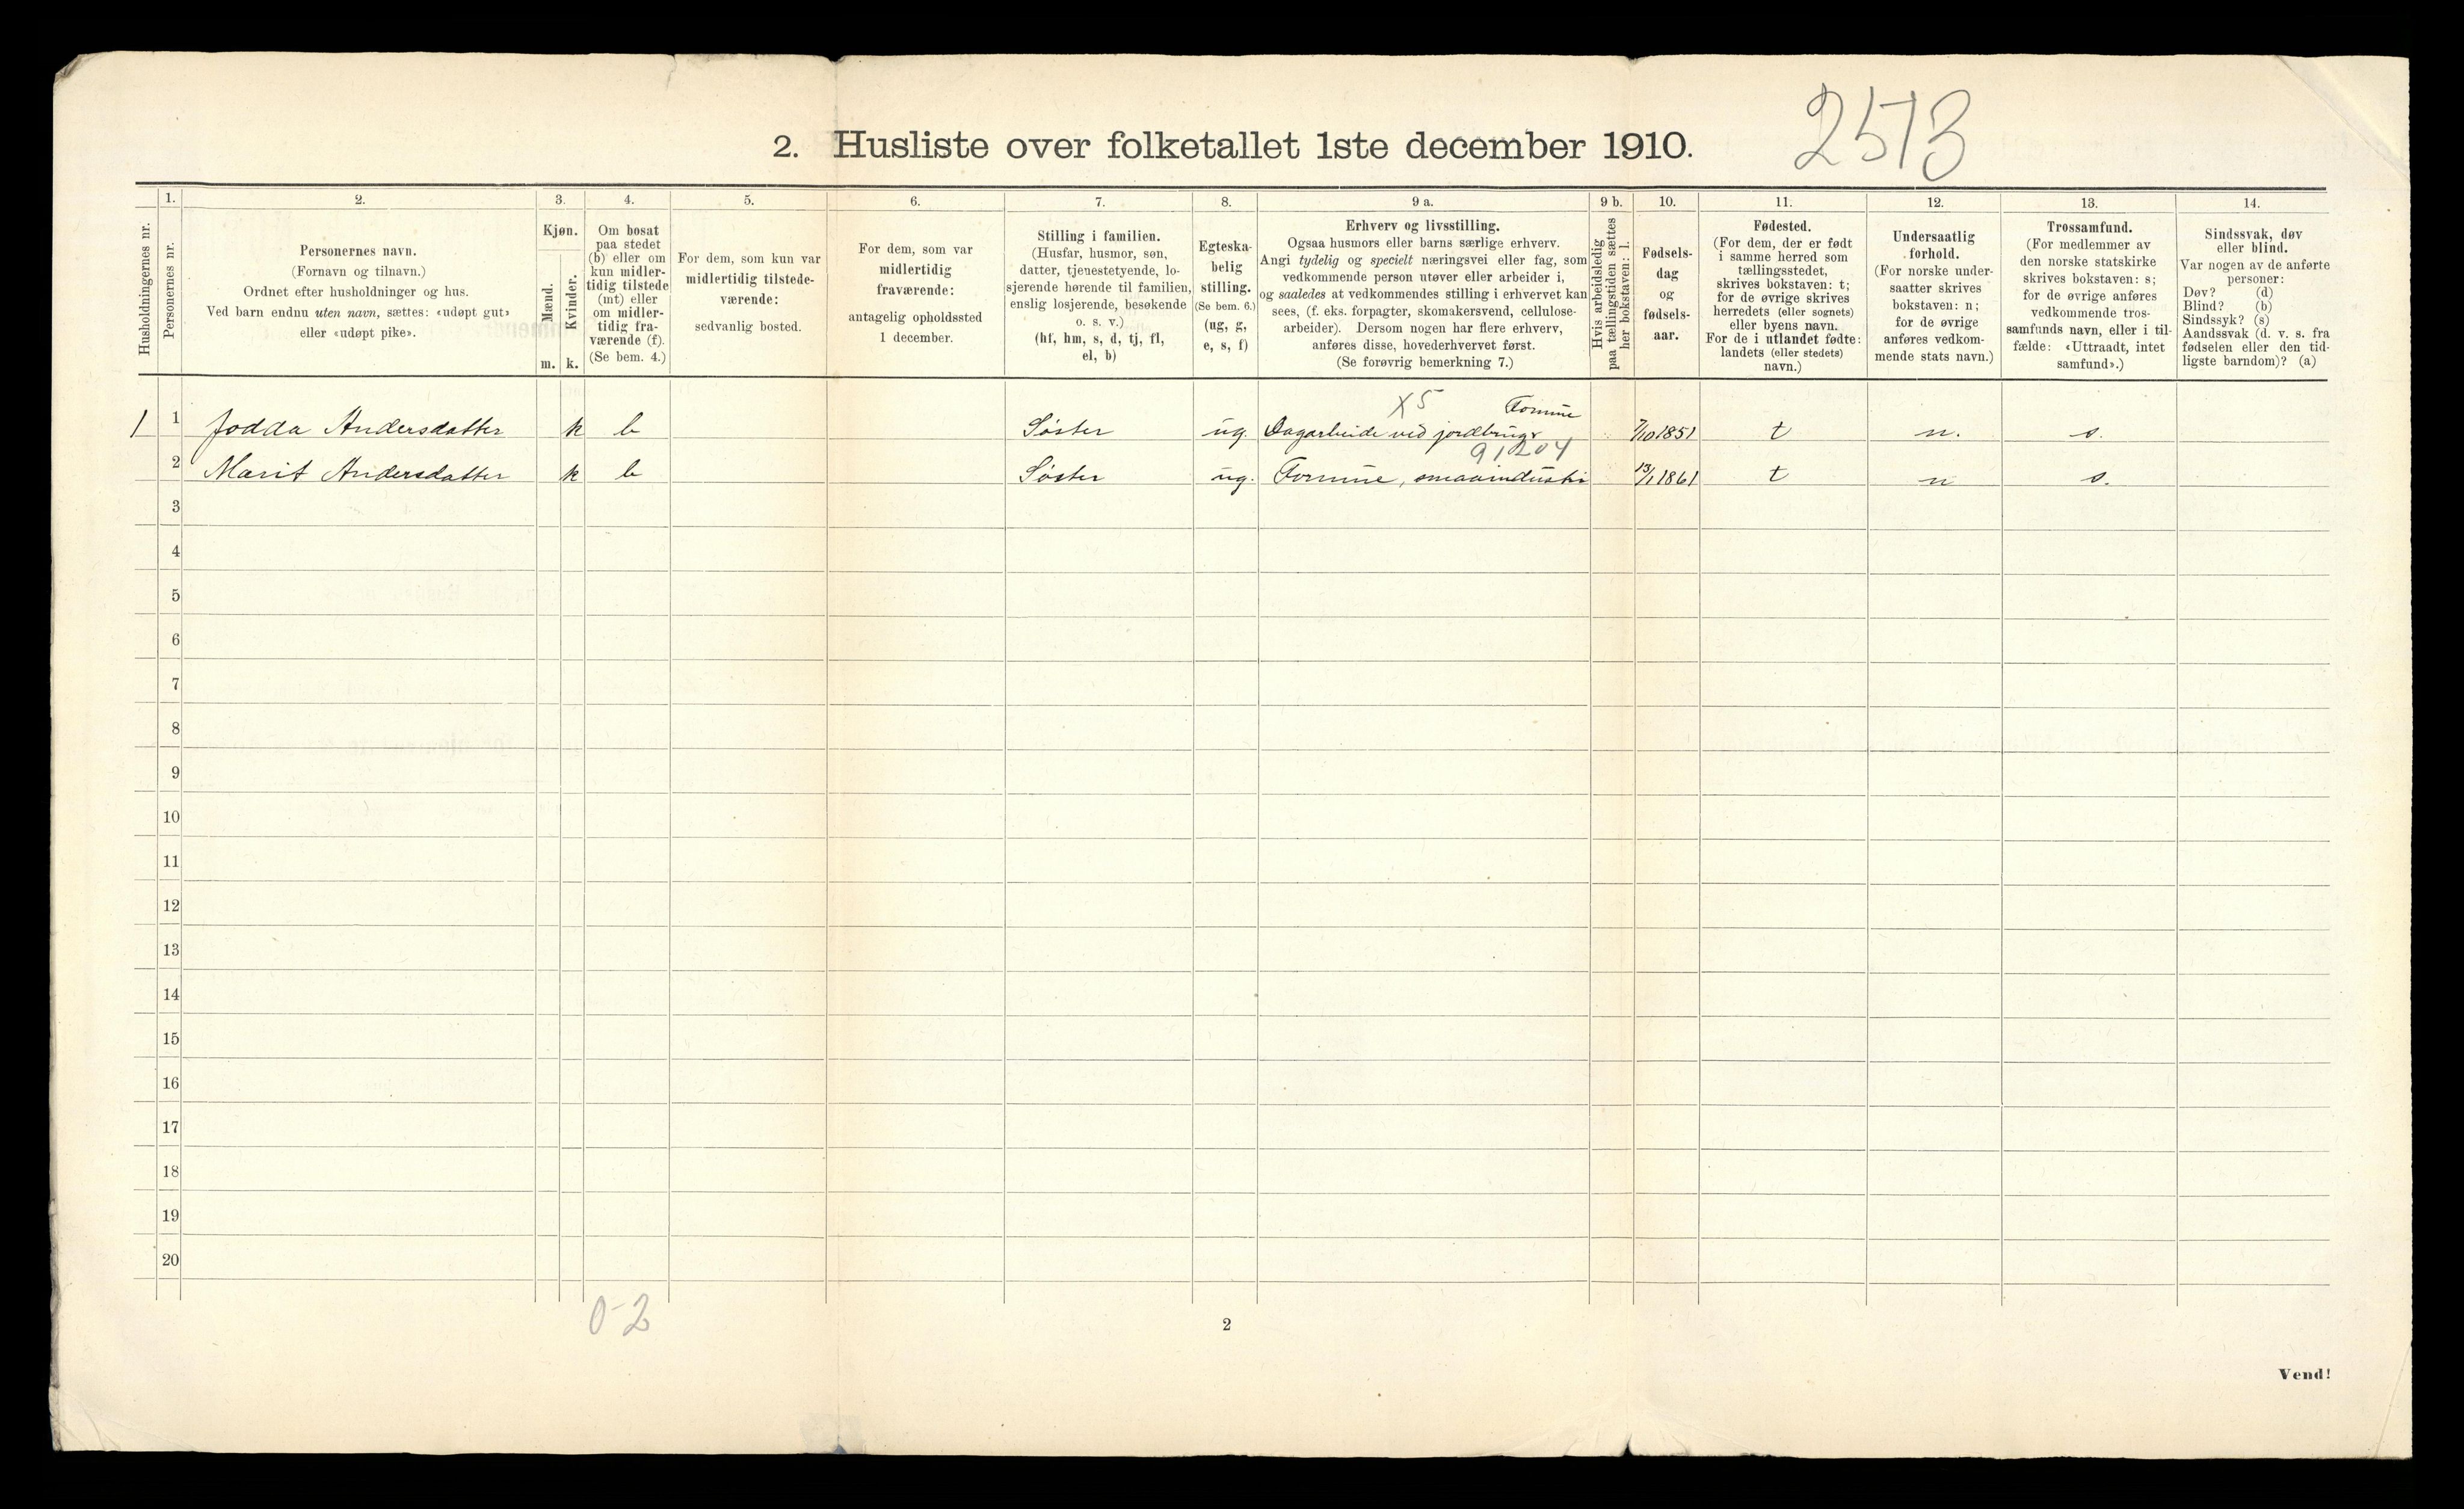 2573
2. Husliste over folketallet 1ste december 1910.
Husholdningernes nr.
1.
Personernes nr.
2.
Personernes navn.
(Fornavn og tilnavn.)
Ordnet efter husholdninger og hus.
Ved barn endnu uten navn, sættes: «udøpt gut»
eller «udøpt pike».
3.
Kjøn.
Mænd.
Kvinder.
m. k.
4.
Om bosat
paa stedet
(b) eller om
kun midler-
tidig tilstede
(mt) eller
om midler-
tidig fra-
værende (f).
(Se bem. 4.)
5.
For dem, som kun var
midlertidig tilstede-
værende:
sedvanlig bosted.
6.
For dem, som var
midlertidig
fraværende:
antagelig opholdssted
1 december.
7.
Stilling i familien.
(Husfar, husmor, søn,
datter, tjenestetyende, lo-
sjerende hørende til familien,
enslig losjerende, besøkende
o. s. v.)
(hf, hm, s, d, tj, fl,
el, b)
8.
Egteska-
belig
stilling.
(Se bem. 6.)
(ug, g,
e, s, f)
9 a.
Erhverv og livsstilling.
Ogsaa husmors eller barns særlige erhverv.
Angi tydelig og specielt næringsvei eller fag, som
vedkommende person utøver eller arbeider i,
og saaledes at vedkommendes stilling i erhvervet kan
sees, (f. eks. forpagter, skomakersvend, cellulose-
arbeider). Dersom nogen har flere erhverv,
anføres disse, hovederhvervet først.
(Se forøvrig bemerkning 7.)
9 b.
Hvis arbeidsledig
paa tællingstiden sættes
her bokstaven: l.
10.
Fødsels-
dag
og
fødsels-
aar.
11.
Fødested.
(For dem, der er født
i samme herred som
tællingsstedet,
skrives bokstaven: t;
for de øvrige skrives
herredets (eller sognets)
eller byens navn.
For de i utlandet fødte:
landets (eller stedets)
navn.)
12.
Undersaatlig
forhold.
(For norske under-
saatter skrives
bokstaven: n;
for de øvrige
anføres vedkom-
mende stats navn.)
13.
Trossamfund.
(For medlemmer av
den norske statskirke
skrives bokstaven: s;
for de øvrige anføres
vedkommende tros-
samfunds navn, eller i til-
fælde: «Uttraadt, intet
samfund».)
14.
Sindssvak, døv
eller blind.
Var nogen av de anførte
personer:
Døv? (d)
Blind? (b)
Sindssyk? (s)
Aandssvak (d. v. s. fra
fødselen eller den tid-
ligste barndom)? (a)
X5
1 1 Jodda Andersdatter k b Søster ug. Dagarbeide ved jordbrug 7/10 1851 t n. s.
91204
2 Marit Andersdatter k b Søster ug. 13/1 1861 t n s.
3
4
5
6
7
8
9
10
11
12
13
14
15
16
17
18
19
20
0-2
2
Vend!